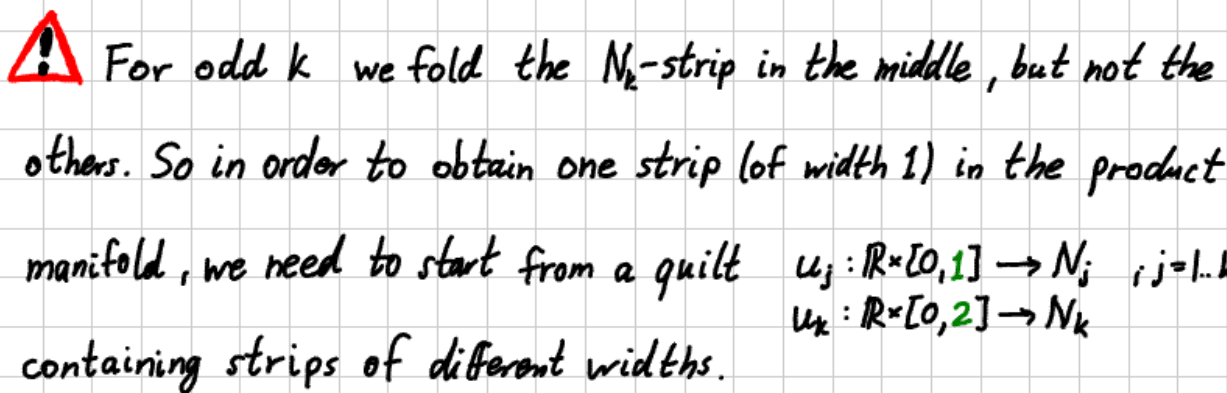 ! For odd k we fold the Nₖ-strip in the middle, but not the
others. So in order to obtain one strip (of width 1) in the product
manifold, we need to start from a quilt uⱼ : ℝ×[0,1] → Nⱼ , j=1..
uₖ : ℝ×[0,2] → Nₖ
containing strips of different widths.